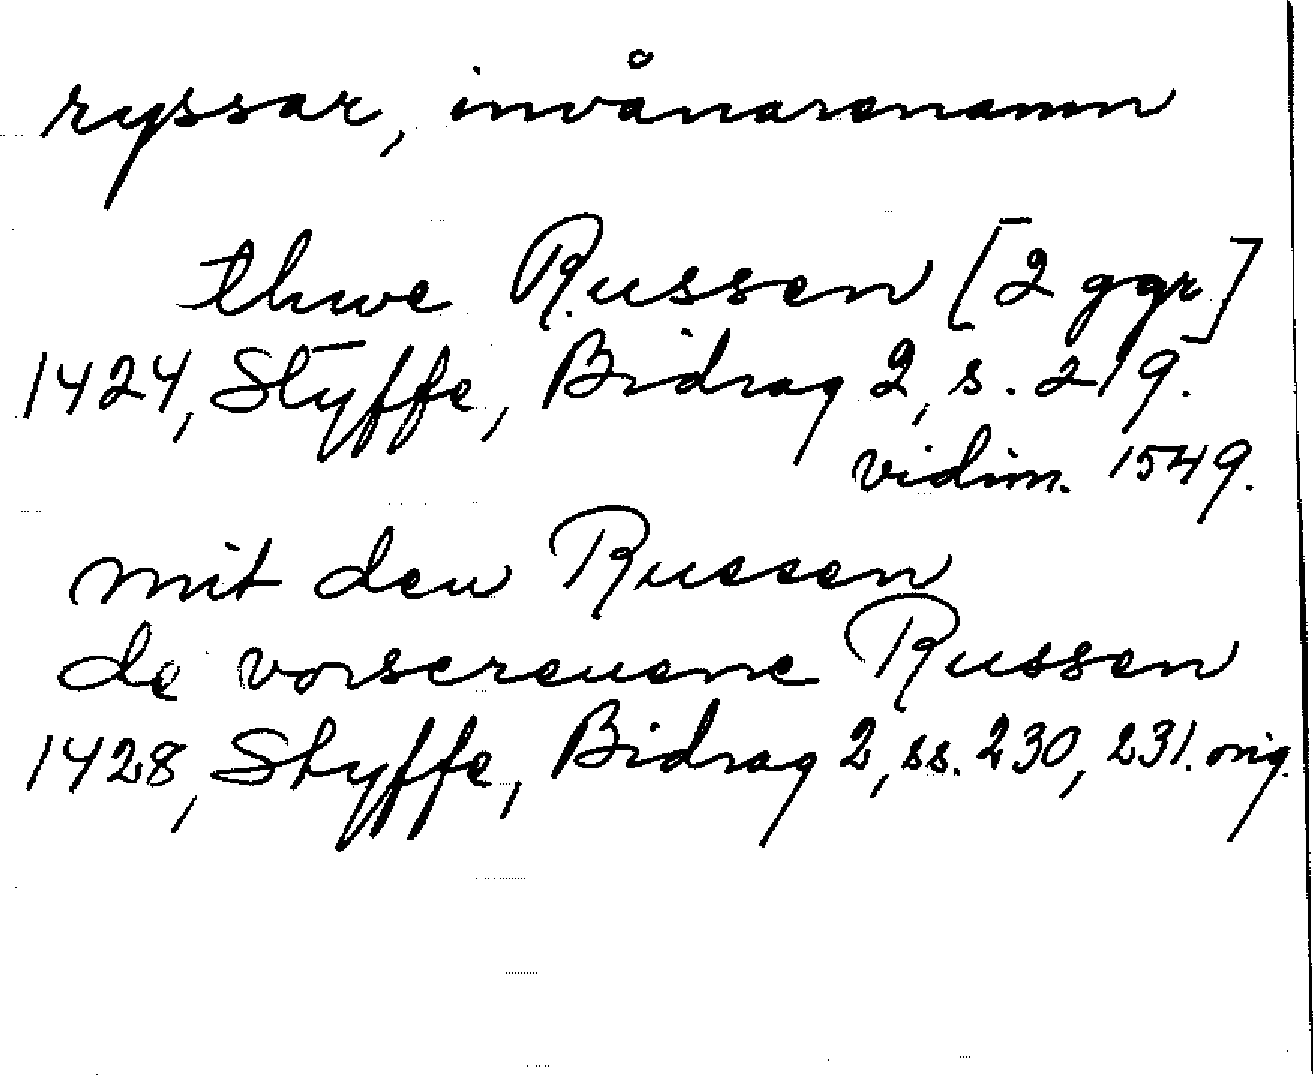 ryssar, invånarenamn
thwe Russen [2 ggr]
1424, Styffe, Bidrag 2, s. 219.
vidim. 1549.
mit den Russen
de vorscreuene Russen
1428, Styffe, Bidrag 2, ss. 230, 231. orig.